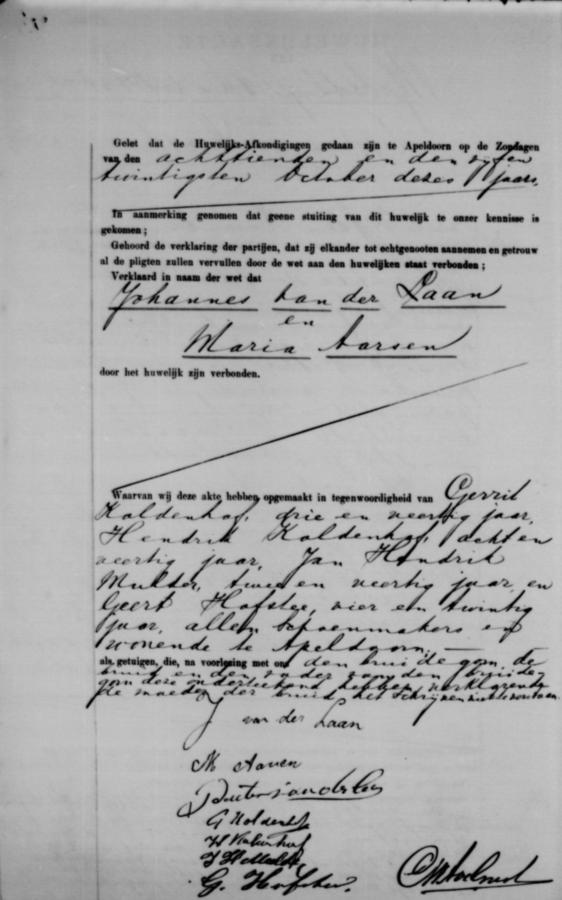 Gelet dat de Huwelijks-Afkondigingen gedaan zijn te Apeldoorn op de Zondagen
van den achttienden en den vijfen
twintigsten October dezes jaars.
In aanmerking genomen dat geene stuiting van dit huwelijk te onzer kennisse is
gekomen;
Gehoord de verklaring der partijen, dat zij elkander tot echtgenooten aannemen en getrouw
al de pligten zullen vervullen door de wet aan den huwelijken staat verbonden;
Verklaard in naam der wet dat
Johannes van der Laan
en
Maria Aarsen
door het huwelijk zijn verbonden.
Waarvan wij deze akte hebben opgemaakt in tegenwoordigheid van Gerrit
Koldenhof, drie en veertig jaar,
Hendrik Koldenhof, acht en
veertig jaar, Jan Hendrik
Mulder, twee en veertig jaar en
Geert Hofstee, vier en twintig
jaar, allen schoenmakers en
wonende te Apeldoorn,
als getuigen, die, na voorlezing met ons den bruidegom, de
bruid en den vader van den bruide-
gom deze onderteekend hebben, verklarende
de moeder der bruid het schrijven niet
J van der Laan
M Aarsen
G Koldenhof
H Koldenhof
G. Hofstee.